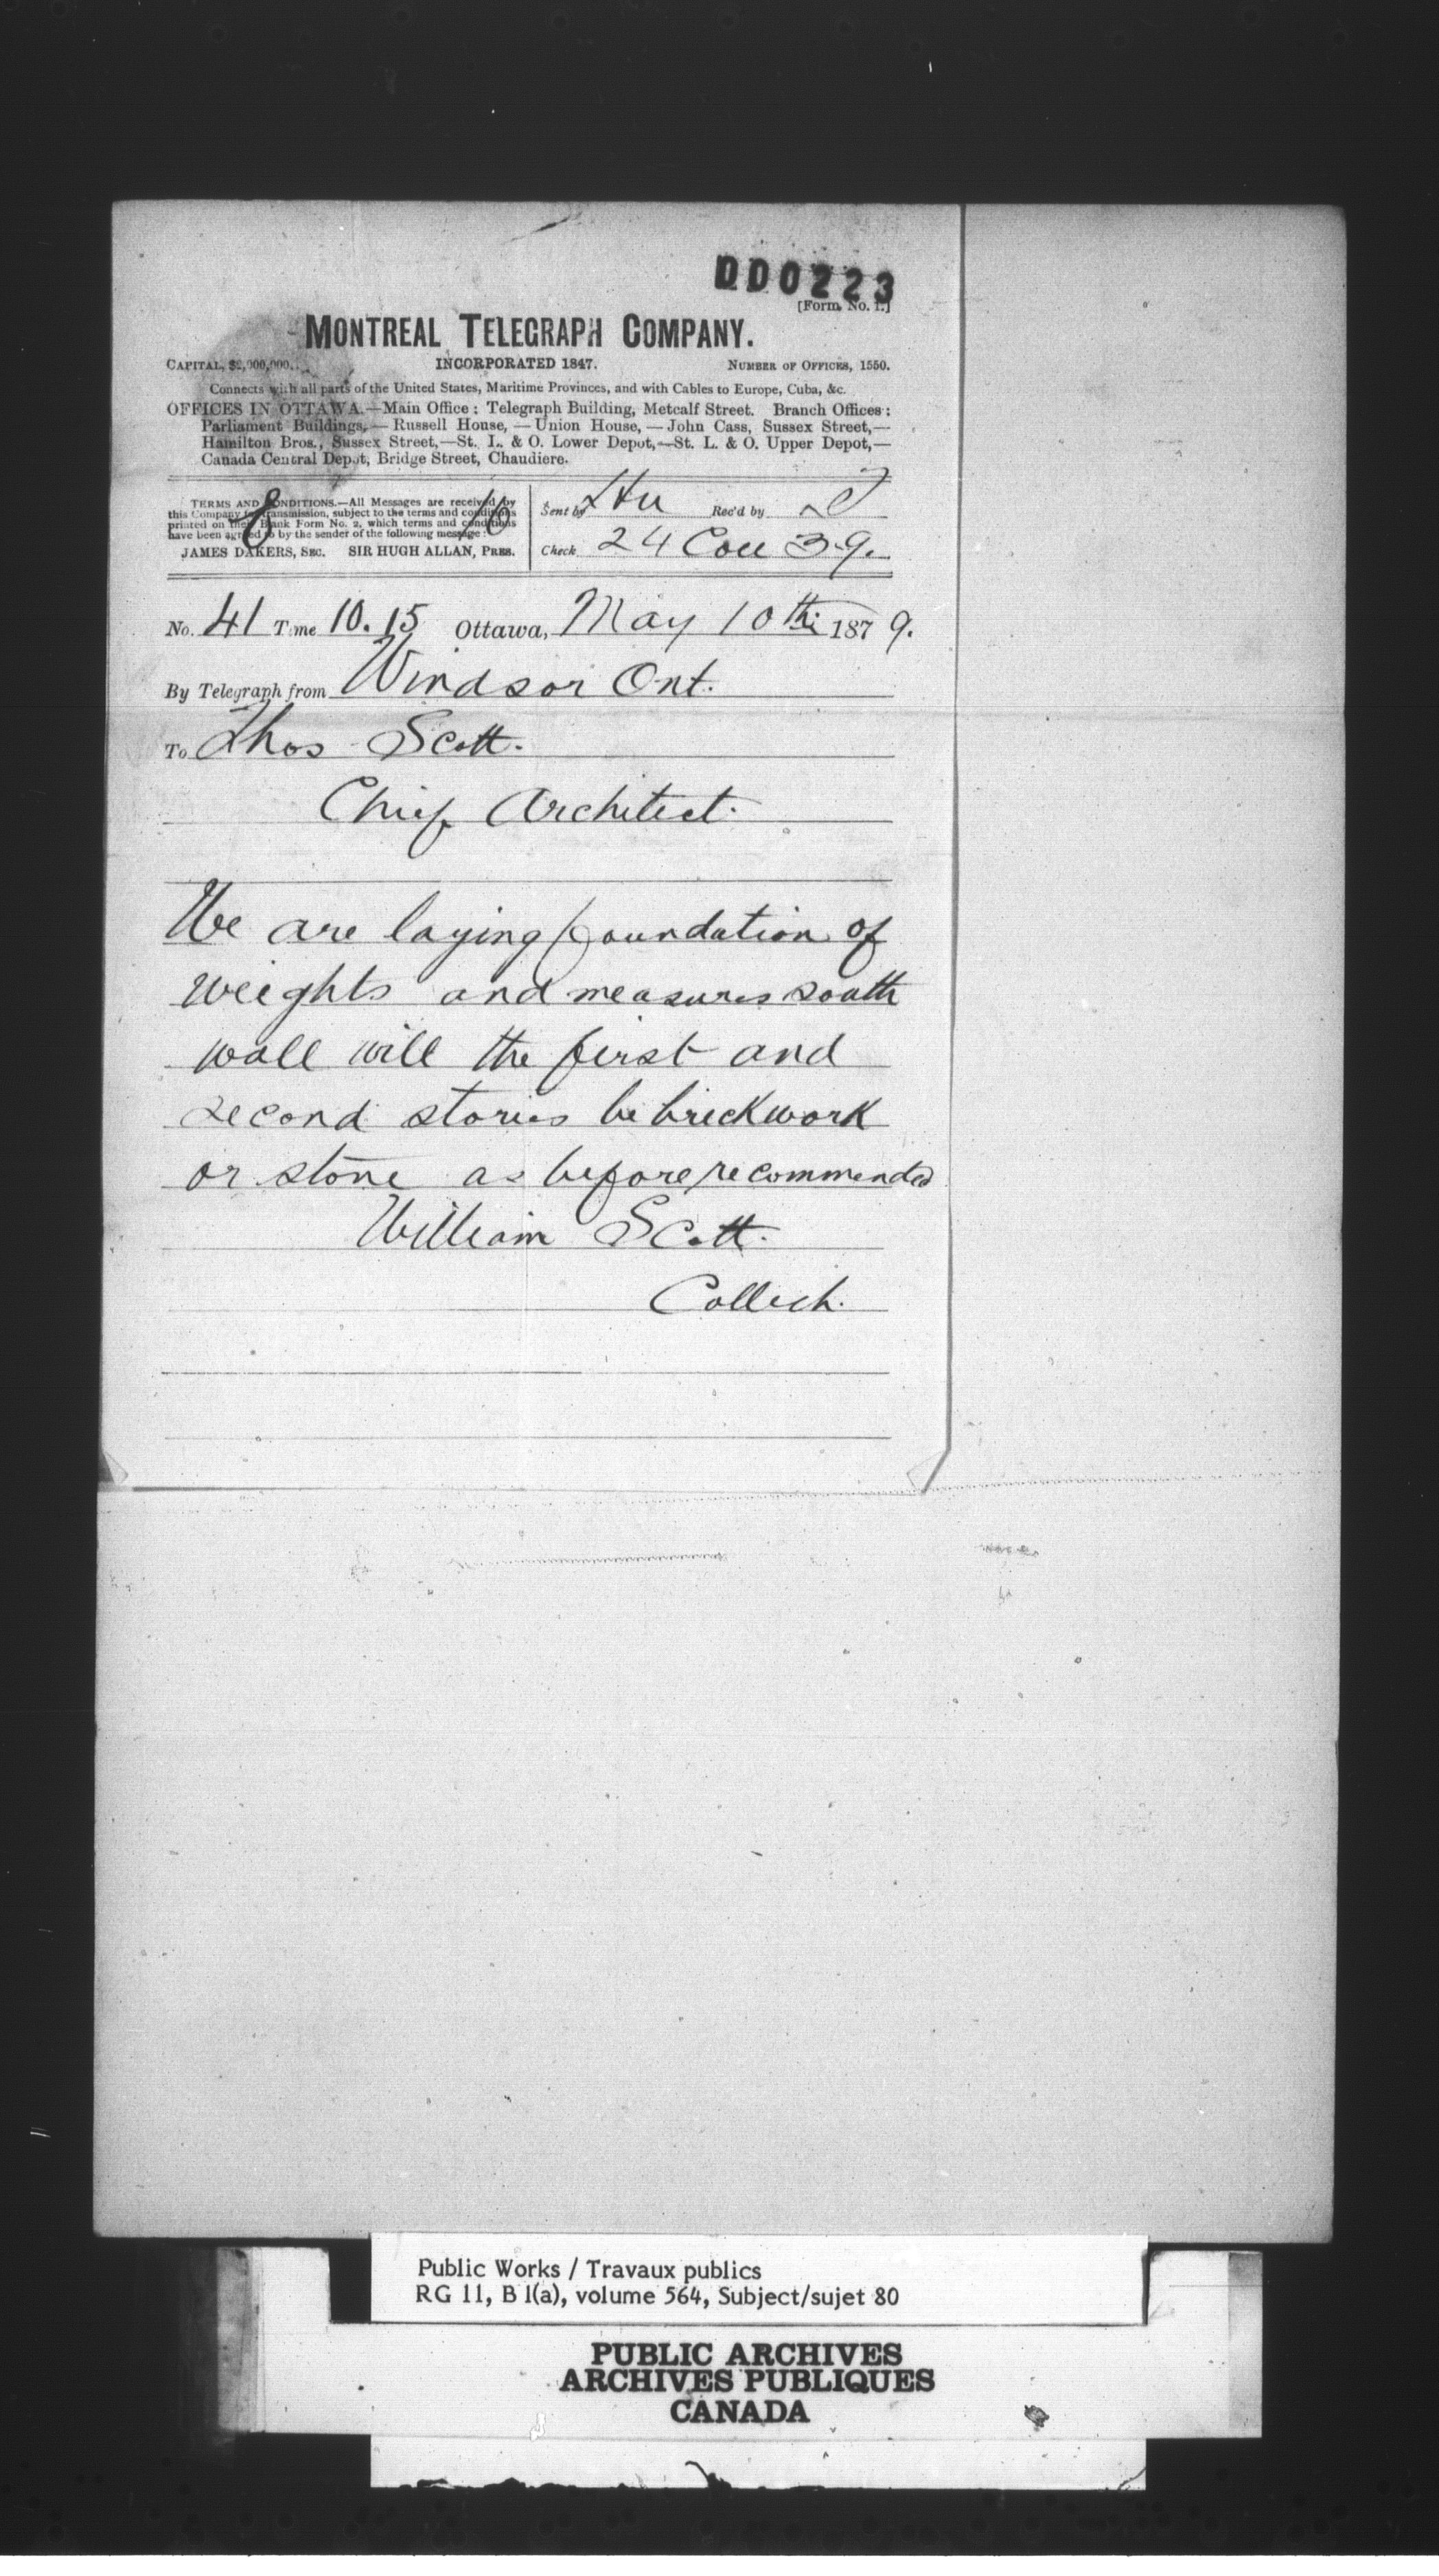 DD0223
[Form No. 1.]
MONTREAL TELEGRAPH COMPANY.
CAPITAL, $2,000,000. INCORPORATED 1847. NUMBER OF OFFICES, 1550.
Connects with all parts of the United States, Maritime Provinces, and with Cables to Europe, Cuba, &c.
OFFICES IN OTTAWA.—Main Office: Telegraph Building, Metcalf Street. Branch Offices:
Parliament Buildings,— Russell House, — Union House, — John Cass, Sussex Street,—
Hamilton Bros., Sussex Street,—St. L. & O. Lower Depot,—St. L. & O. Upper Depot,—
Canada Central Depot, Bridge Street, Chaudiere.
TERMS AND CONDITIONS.—All Messages are received by
this Company for transmission, subject to the terms and conditions
printed on their Blank Form No. 2, which terms and conditions
have been agreed to by the sender of the following message:
JAMES DAKERS, SEC. SIR HUGH ALLAN, PRES.
8 16
Sent by Rec'd by
Check 24 Coll 39.
No. 41 Time 10.15 Ottawa, May 10th 1879.
By Telegraph from Windsor Ont.
To Thos Scott.
Chief Architect.
We are laying foundation of
weights and measures south
wall will the first and
second stories be brickwork
or stone as before recommended
William Scott.
Public Works / Travaux publics
RG 11, B 1(a), volume 564, Subject/sujet 80
PUBLIC ARCHIVES
ARCHIVES PUBLIQUES
CANADA